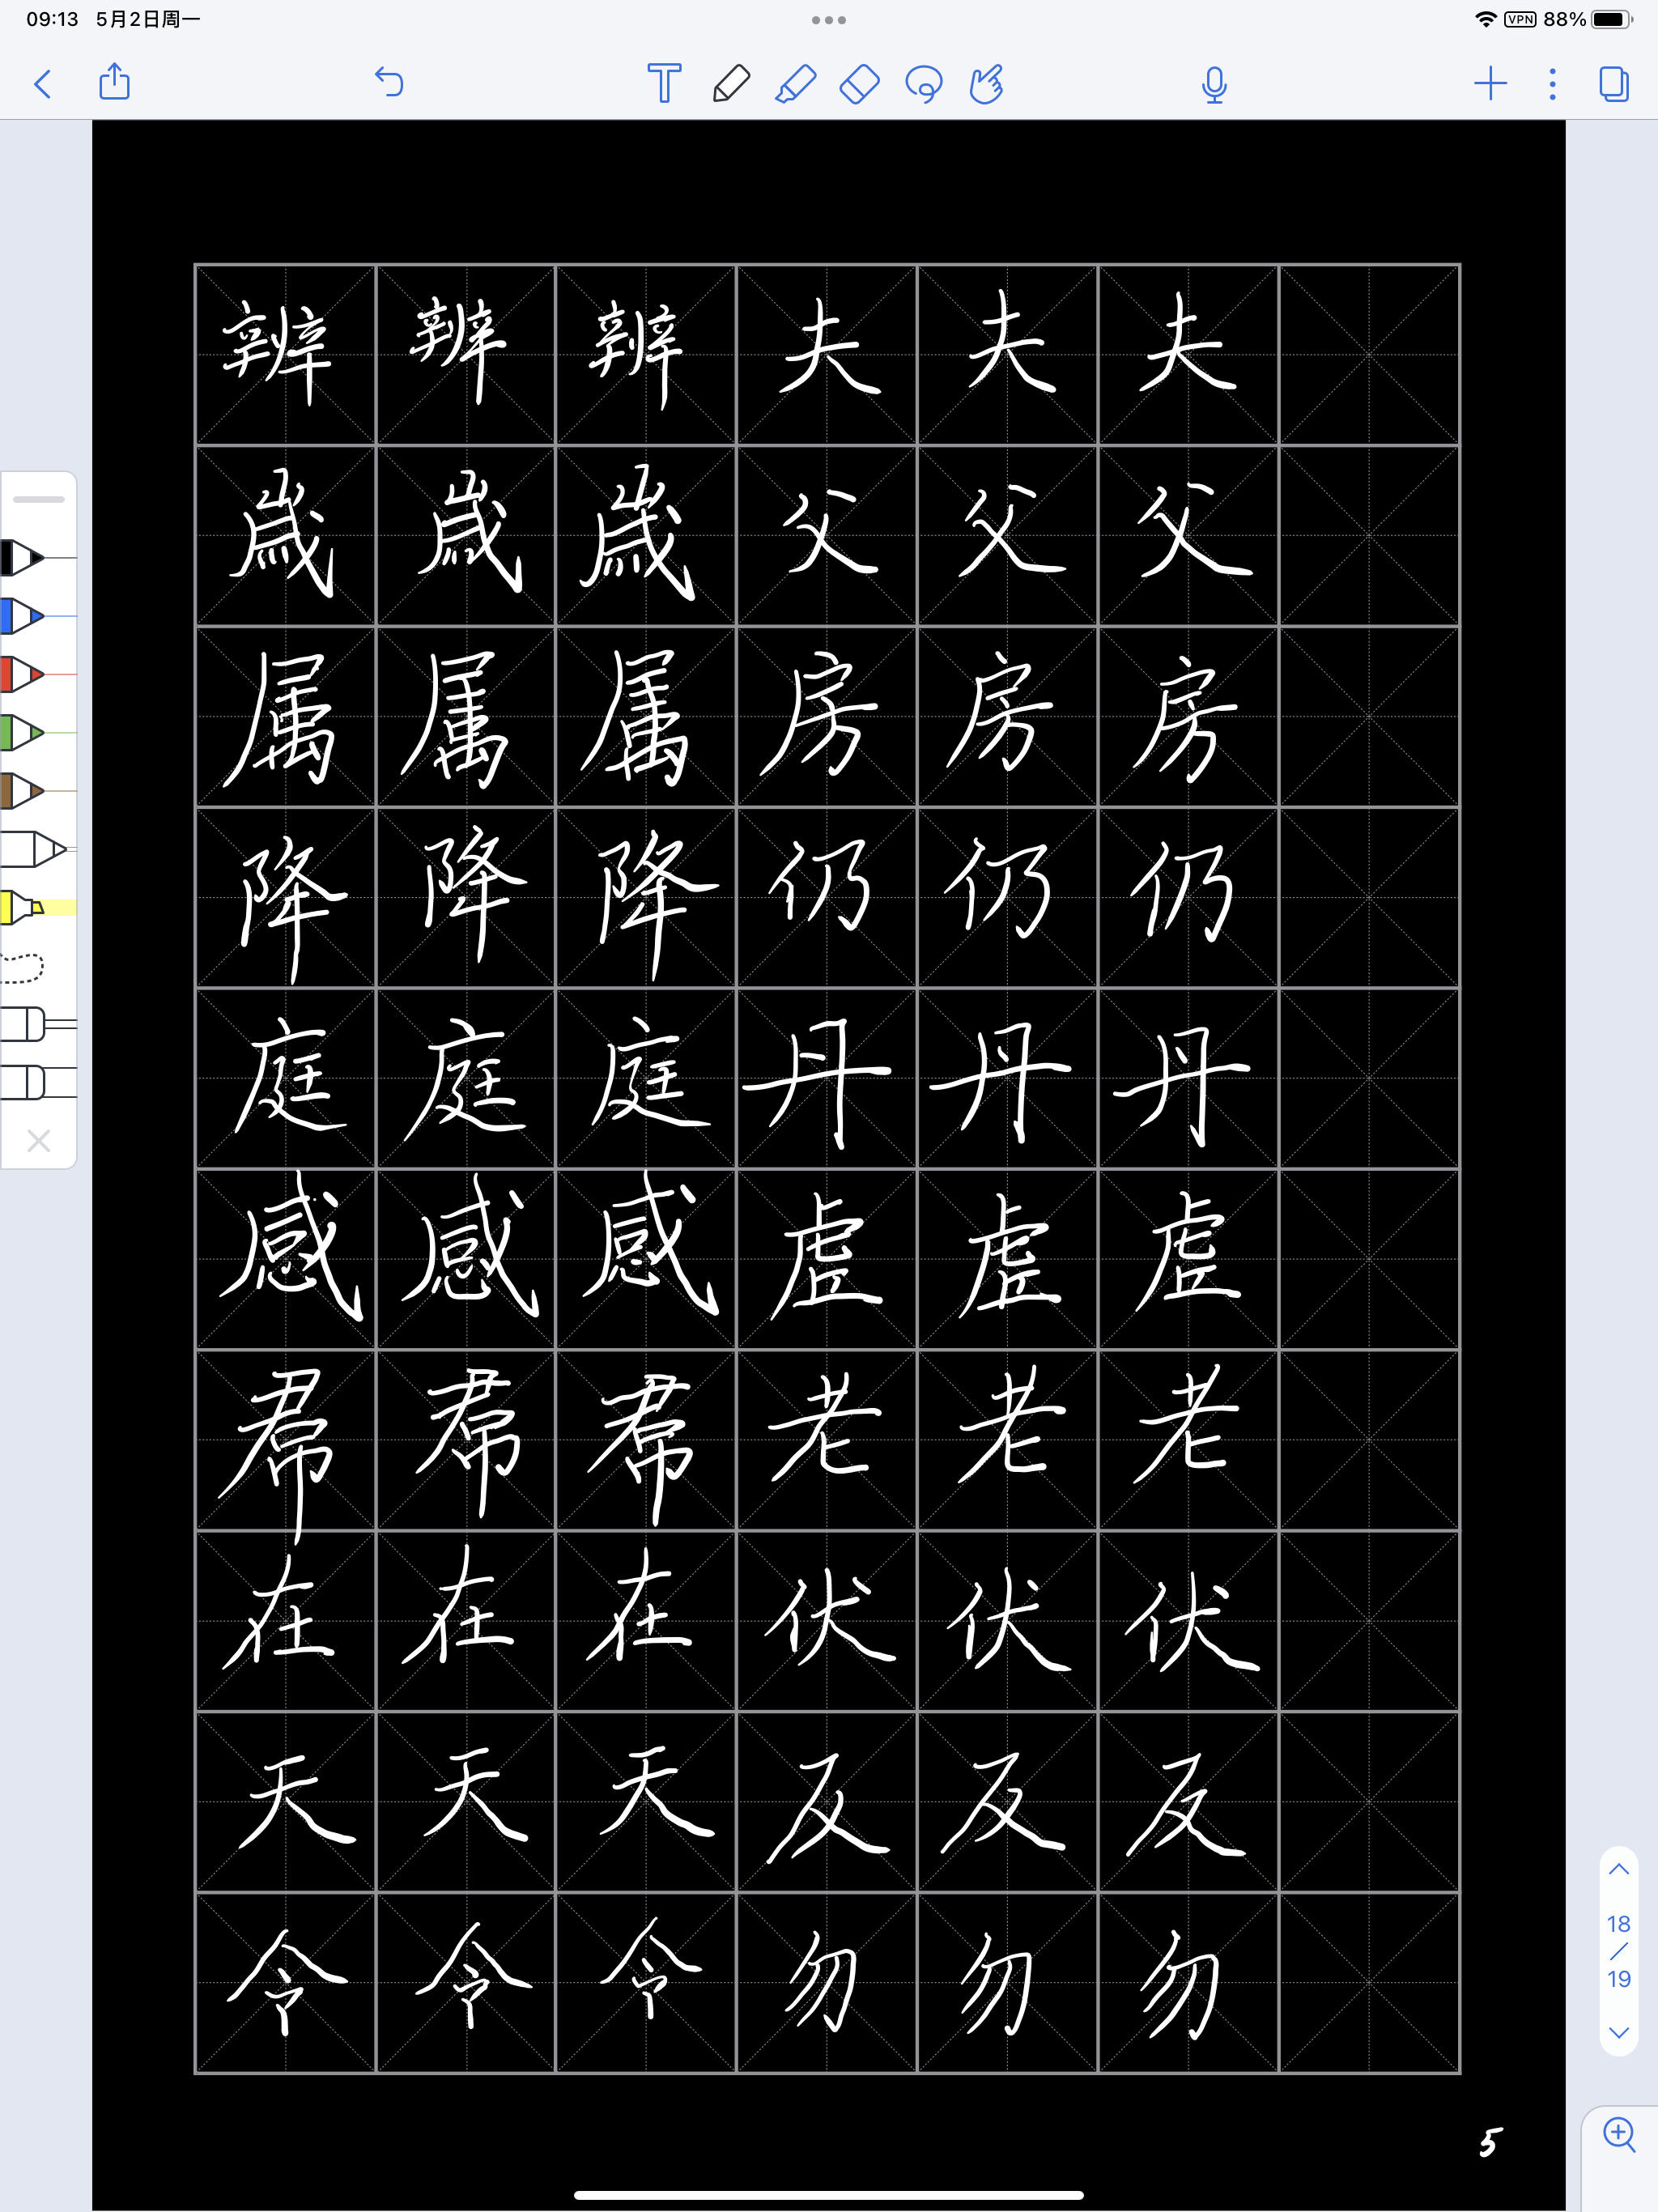 09:13 5月2日周一
VPN 88%
辨辨辨夫夫夫
歳歳歳父父父
属属属房房房
降降降仍仍仍
庭庭庭丹丹丹
感感感虚虚虚
帬帬帬老老老
在在在伏伏伏
天天天反反反
令令令勿勿勿
18
/
19
5